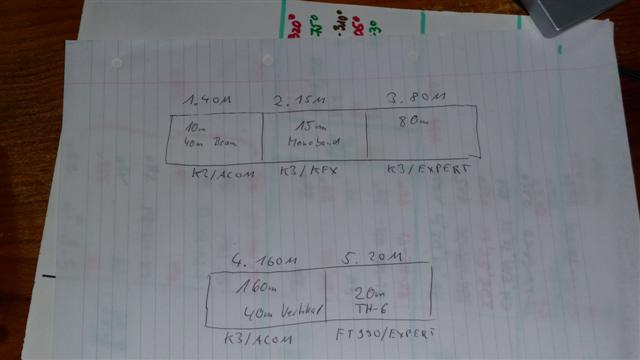 1. 40M 2. 15M 3. 80M
10m 15m 80m
40m Beam Monoband
K3/ACOM K3/KFX K3/EXPERT
4. 160M 5. 20M
160m 20m
40m Vertikal TH-6
K3/ACOM FT990/EXPERT